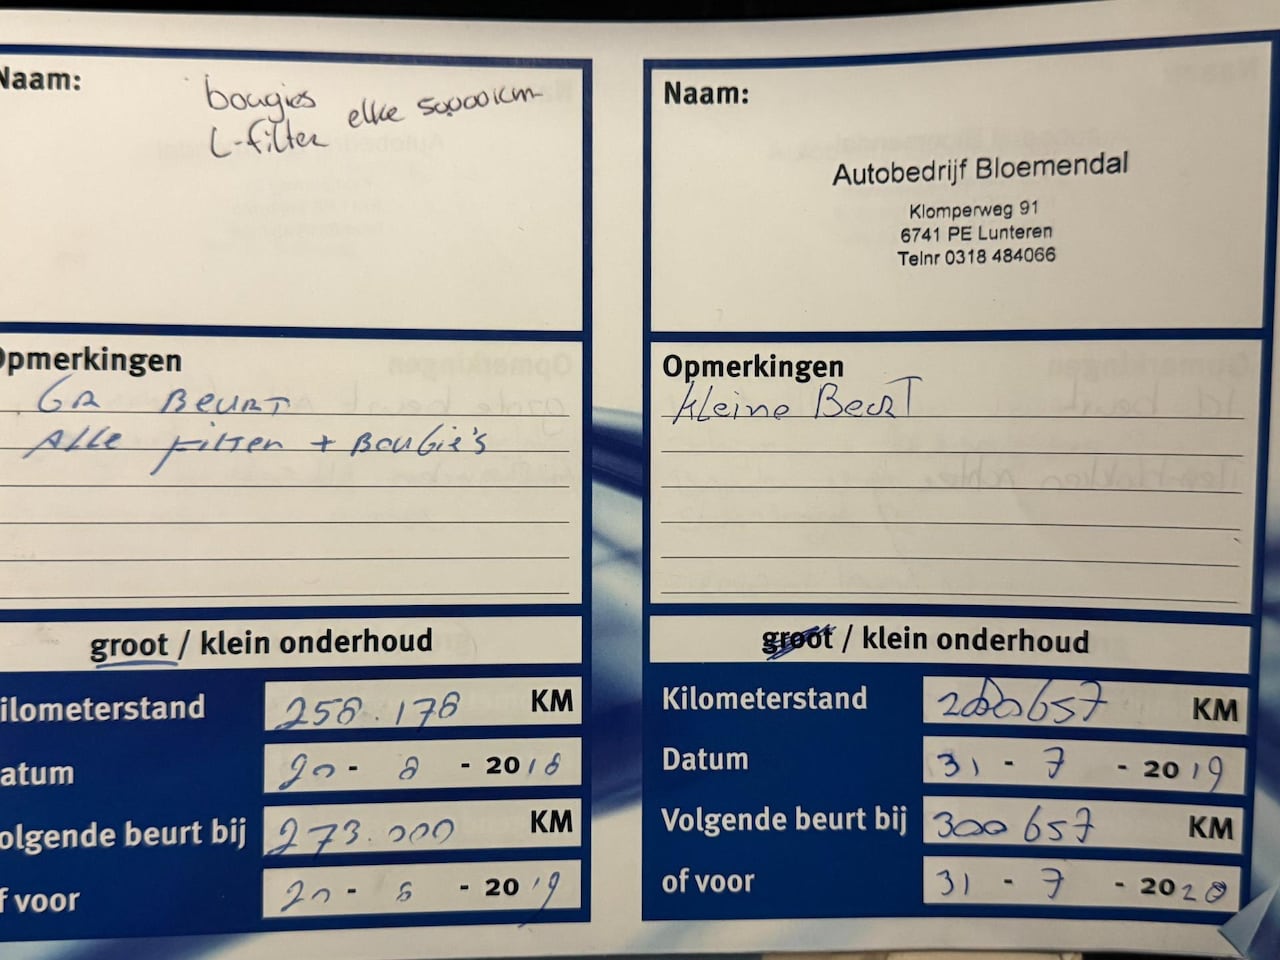 Naam:
bougies
L-filter elke 50.000km
Opmerkingen
GR BEURT
ALLE FILTER + BOUGIE'S
groot / klein onderhoud
ilometerstand 258.178 KM
atum 20 - 8 - 2018
olgende beurt bij 273.000 KM
f voor 20 - 8 - 2019
Naam:
Autobedrijf Bloemendal
Klomperweg 91
6741 PE Lunteren
Telnr 0318 484066
Opmerkingen
Kleine BeurT
groot / klein onderhoud
Kilometerstand KM
Datum 31 - 7 - 2019
Volgende beurt bij 300657 KM
of voor 31 - 7 - 2020